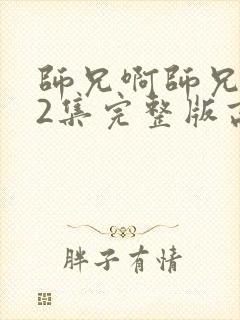 師兄啊師兄
2集完整版
胖子有情